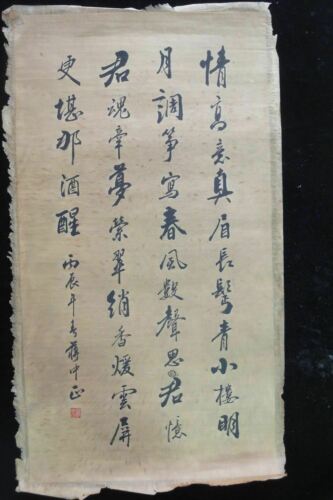 情高意真眉長鬢青小樓明
月調筝寫春風數聲思君憶
君魂牽夢縈翠綃香煖雲屏
更堪那酒醒 丙辰年 蔣中正